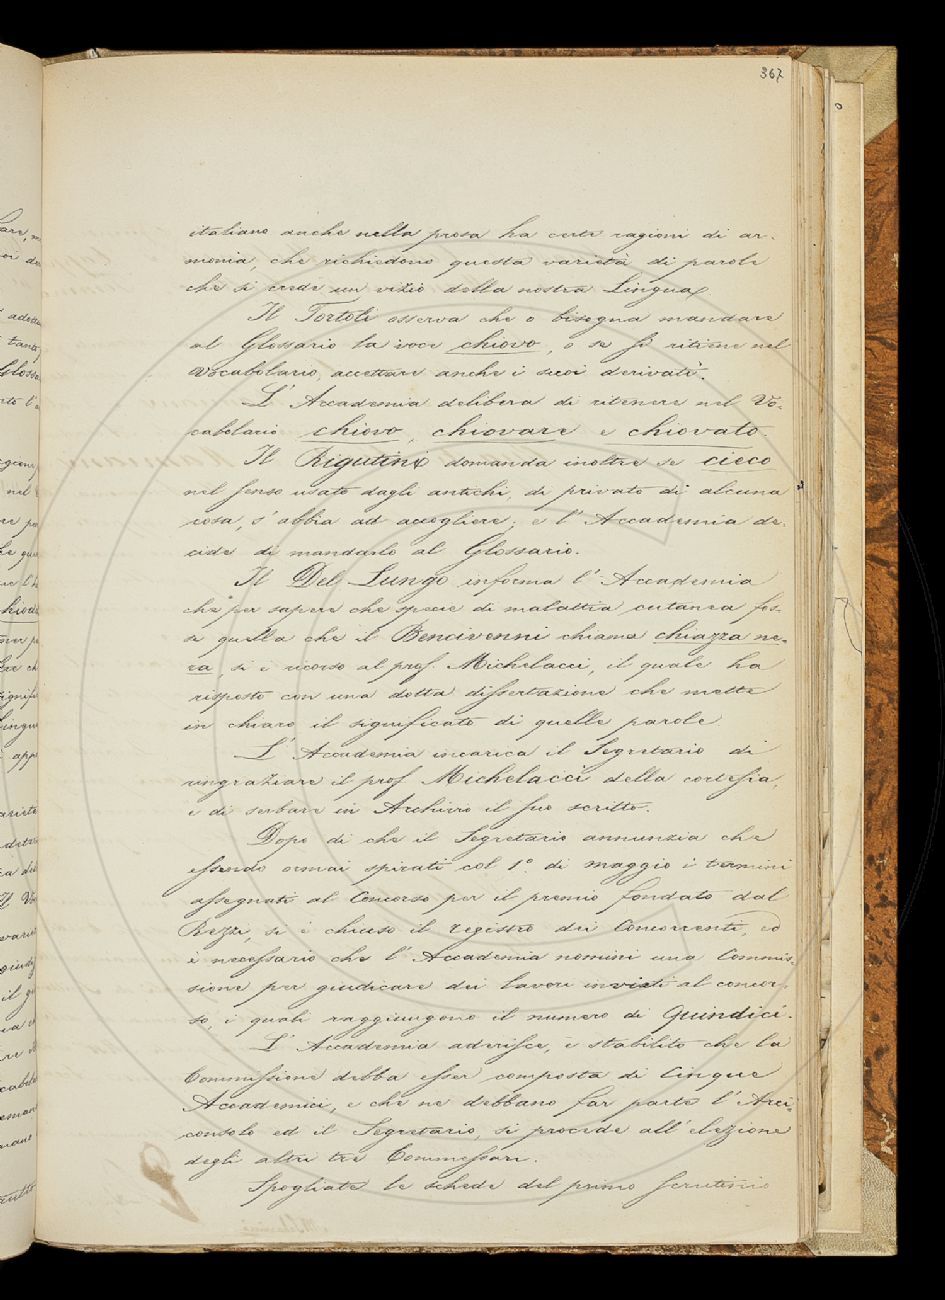 367
italiano anche nella prosa ha certe ragioni di ar-
monia, che richiedono questa varietà di parole
che si crede un vizio della nostra Lingua.
Il Tortoli osserva che o bisogna mandare
al Glossario la voce chiovo, o se si ritiene nel
Vocabolario, accettare anche i suoi derivati.
L'Accademia delibera di ritenere nel Vo-
cabolario chiovo, chiovare e chiovato.
Il Rigutini domanda inoltre se cieco
nel senso usato dagli antichi, di privato di alcuna
cosa, s'abbia ad accogliere; e l'Accademia de-
cide di mandarlo al Glossario.
Il Del Lungo informa l'Accademia
che per sapere che specie di malattia cutanea fos-
se quella che il Bencivenni chiama chiazza ne-
ra, si è ricorso al prof. Michelacci, il quale ha
risposto con una dotta dissertazione che mette
in chiaro il significato di quelle parole.
L'Accademia incarica il Segretario di
ringraziare il prof. Michelacci della cortesia,
e di serbare in Archivio il suo scritto.
Dopo di che il Segretario annunzia che
essendo ormai spirati col 1º. di maggio i termini
assegnati al Concorso per il premio fondato dal
Rezzi, si è chiuso il registro dei Concorrenti, ed
è necessario che l'Accademia nomini una Commis-
sione per giudicare dei lavori inviati al concor-
so, i quali raggiungono il numero di Quindici.
L'Accademia aderisce, e stabilito che la
Commissione debba esser composta di Cinque
Accademici, e che ne debbano far parte l'Arci-
consolo ed il Segretario, si procede all'elezione
degli altri tre Commessari.
Spogliate le schede del primo scrutinio